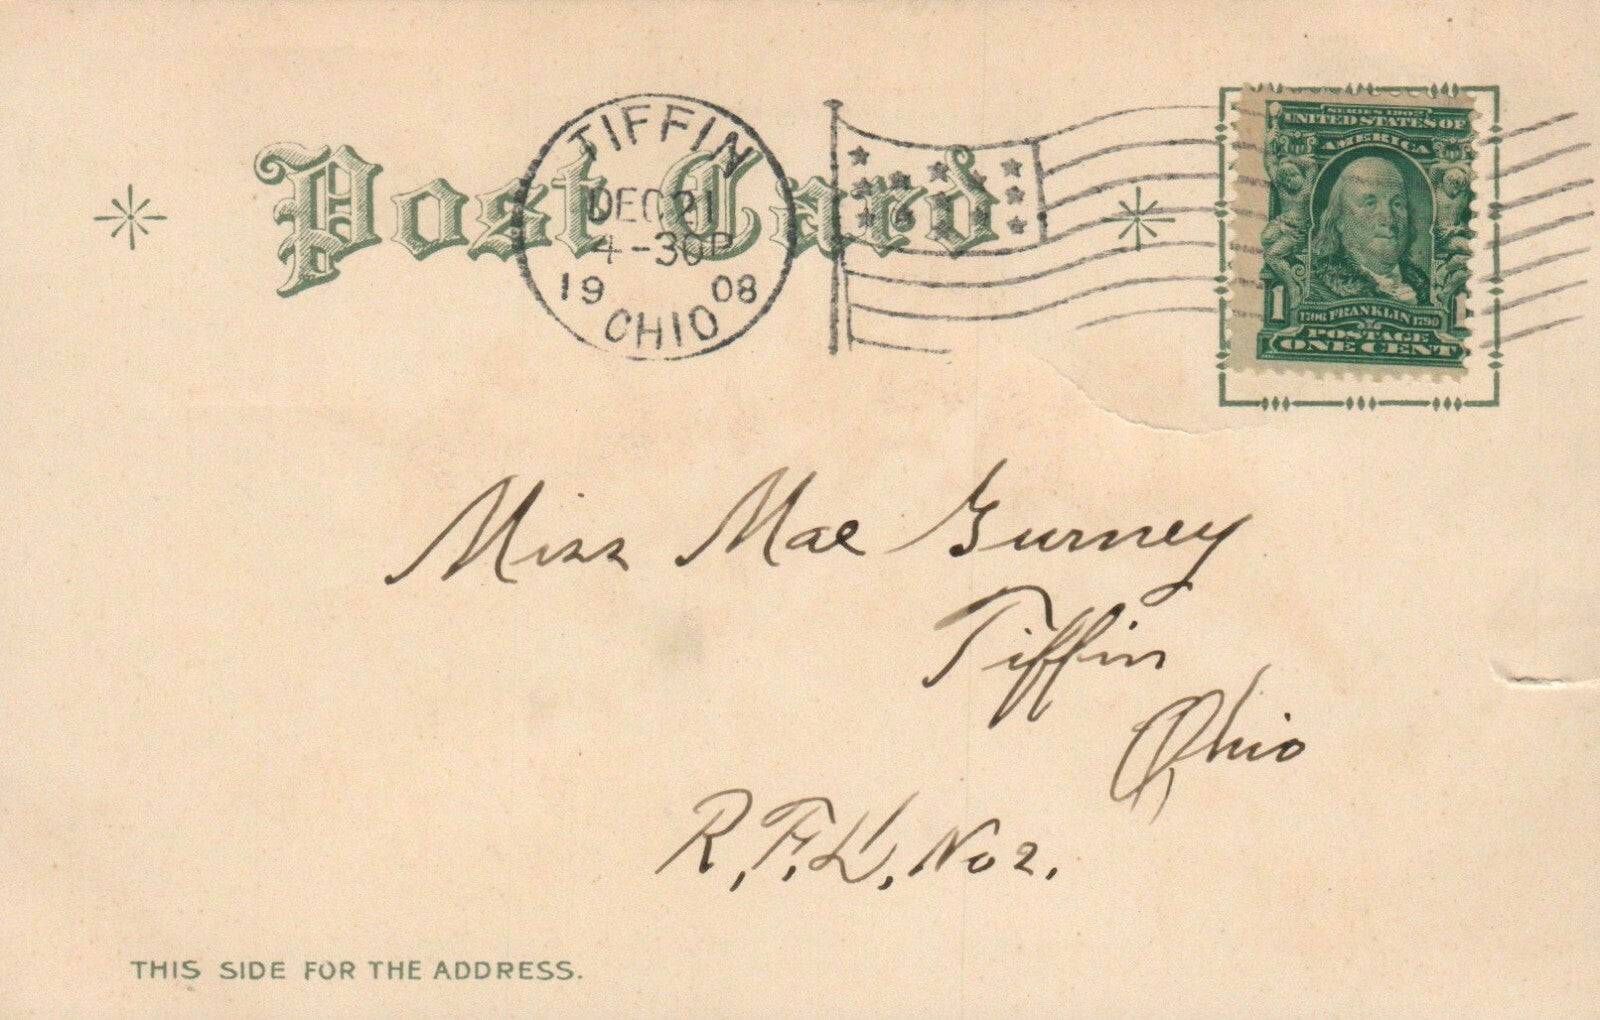 Post Card
TIFFIN
DEC 21
4-30P
19 08
OHIO
SERIES 1902
UNITED STATES OF
AMERICA
1
1706 FRANKLIN 1790
POSTAGE
ONE CENT
Miss Mae Gurney
Tiffin
Ohio
R.F.D. No 2.
THIS SIDE FOR THE ADDRESS.